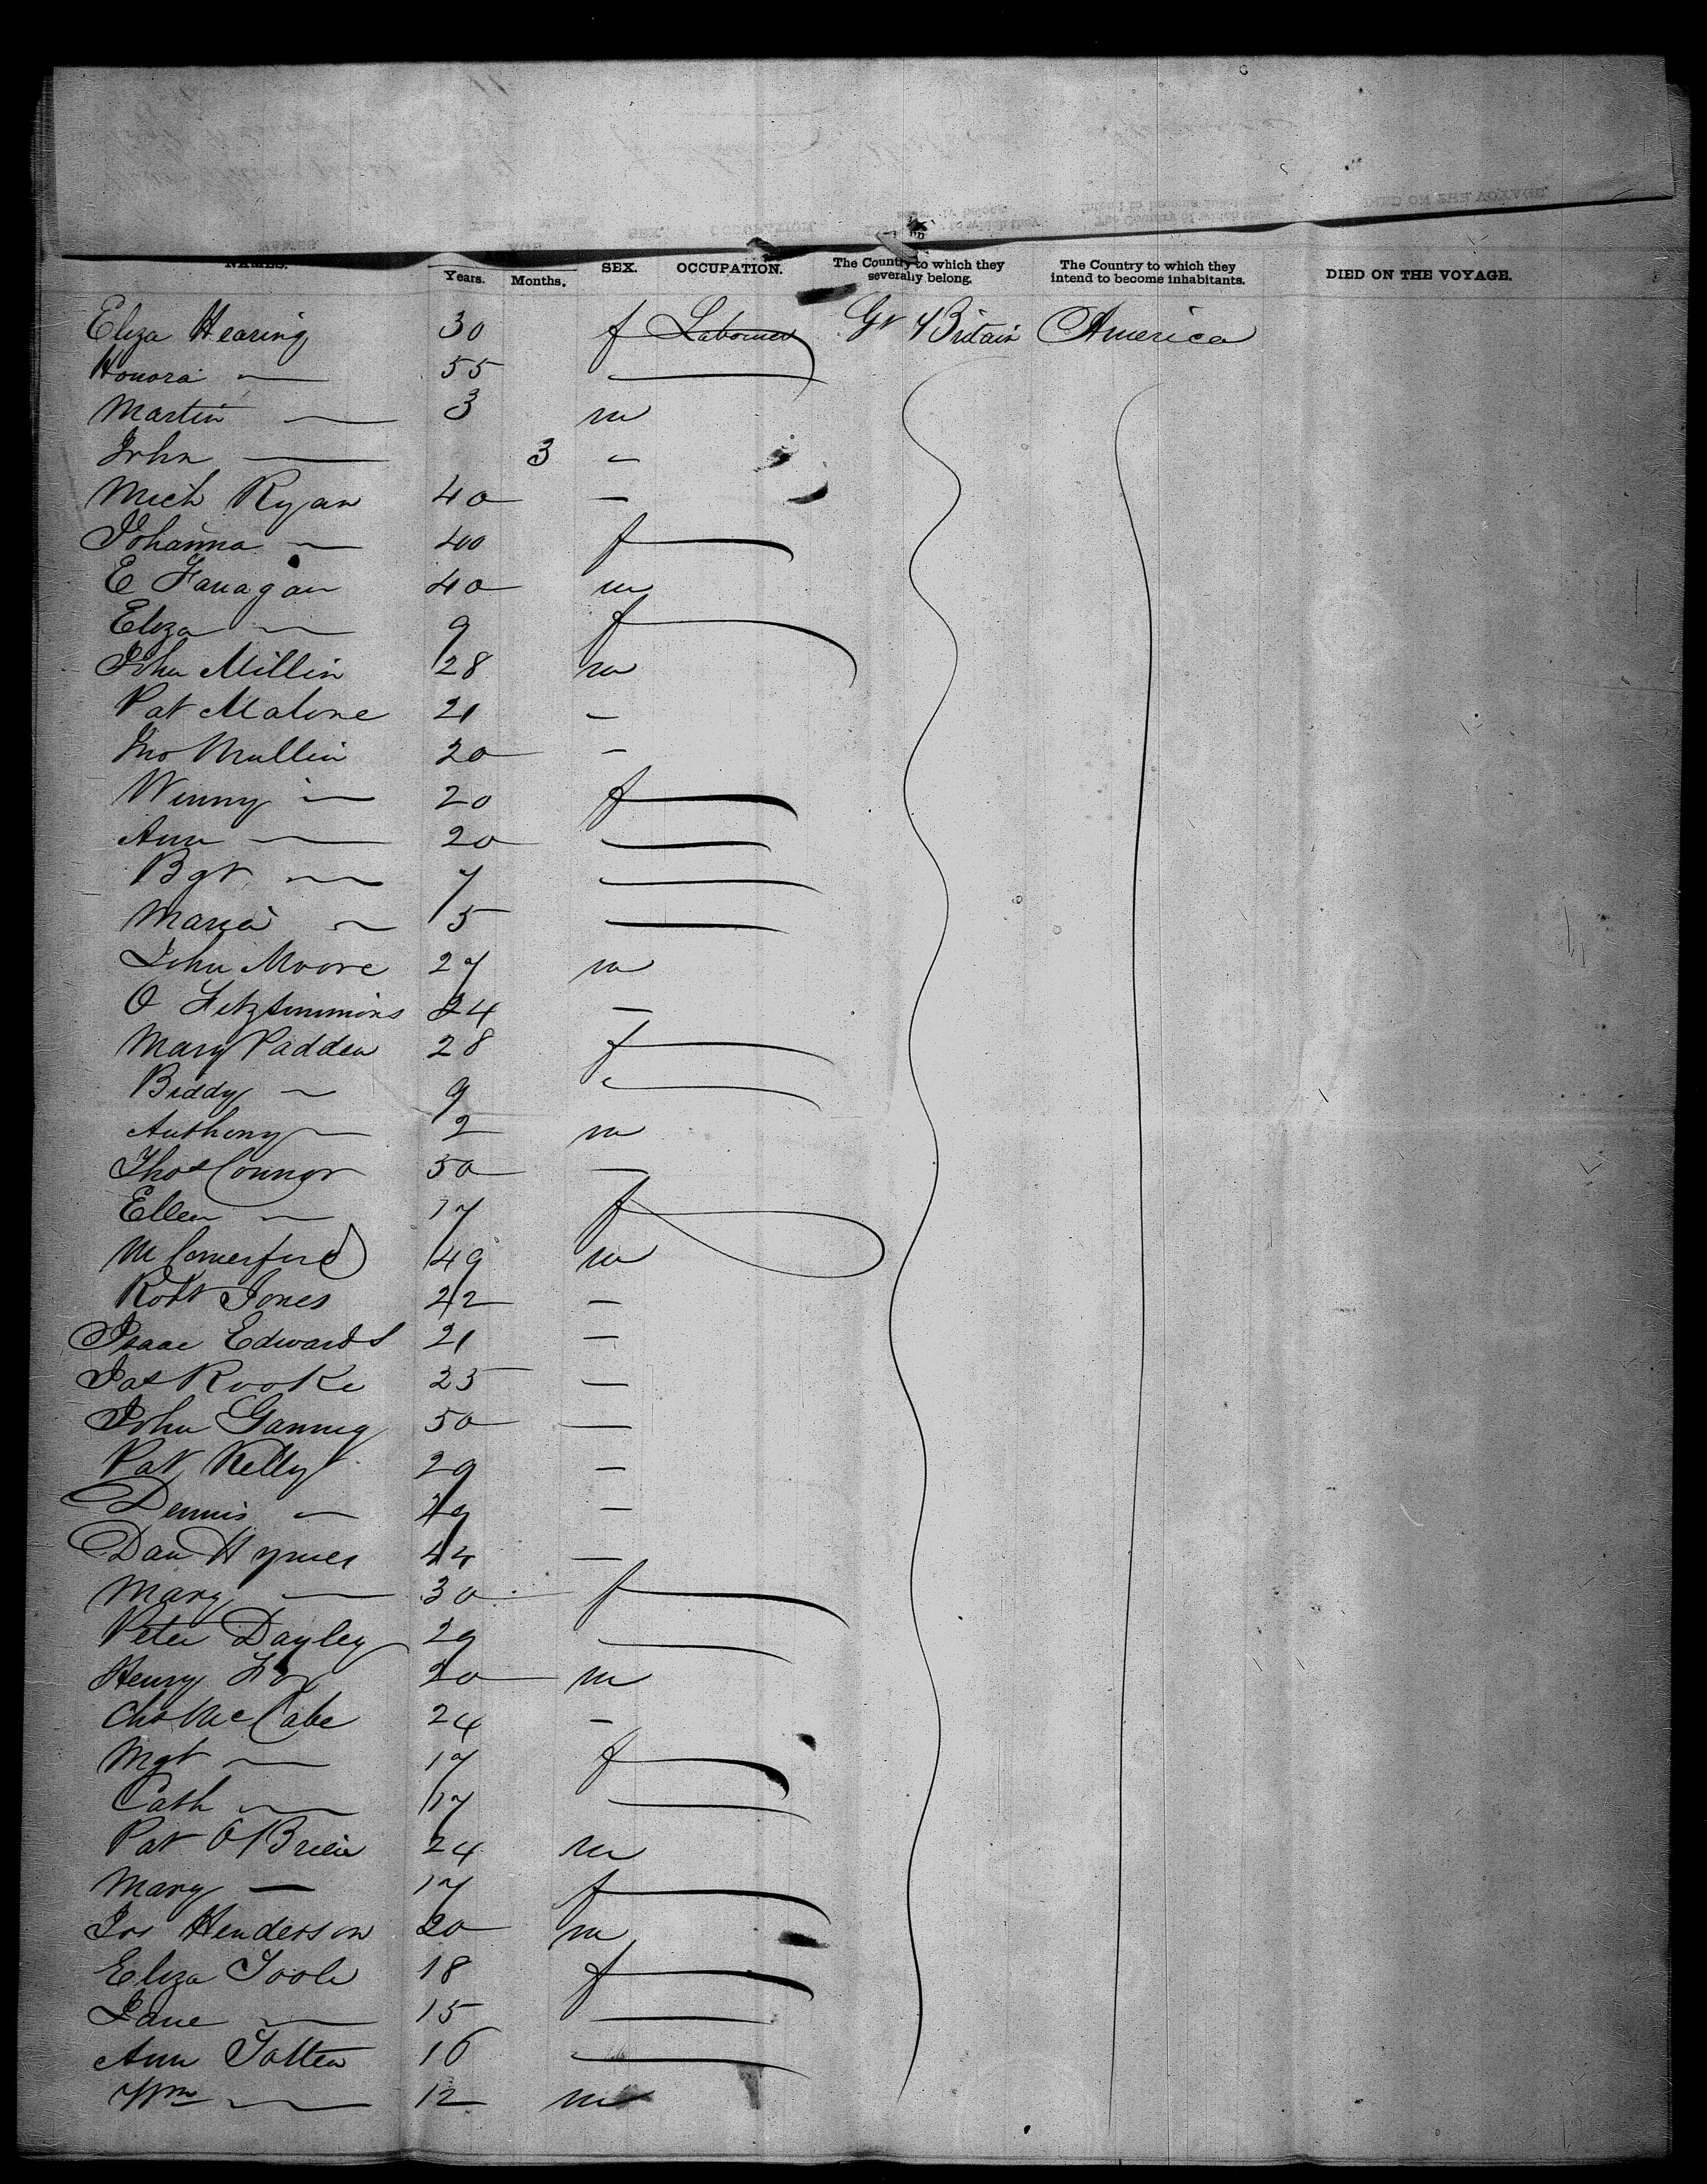 NAMES. Years. Months. SEX. OCCUPATION. The Country to which they severally belong. The Country to which they intend to become inhabitants. DIED ON THE VOYAGE.
Eliza Hearing 30 f Laborer Gt Britain America
Honora — 55 —
Martin — 3 m
John — 3 —
Mich Ryan 40 —
Johanna — 40 f
E Fanagan 40 m
Eliza — 9 f
John Millin 28 m
Pat Malone 21 —
Jno Mullin 20 —
Winny — 20 f
Ann — 20 —
Bgt — 7 —
Maria — 5 —
John Moore 27 m
O Fitzsimmons 24 —
Mary Padden 28 f
Biddy — 9 —
Anthony — 2 m
Thos Connor 50 —
Ellen — 17 f
M Comerford 49 m
Robt Jones 22 —
Isaac Edwards 21 —
Jas Rooke 25 —
John Ganning 50 —
Pat Kelly 29 —
Dennis — 29 —
Dan Hynes 44 —
Mary — 30 f
Peter Dayley 29 —
Henry 20 m
Chs McCabe 24 —
Mgt — 17 f
Cath — 17 —
Pat O'Brien 24 m
Mary — 17 f
Jos Henderson 20 m
Eliza Toole 18 f
Jane — 15 —
Ann Totten 16 —
Wm — 12 m